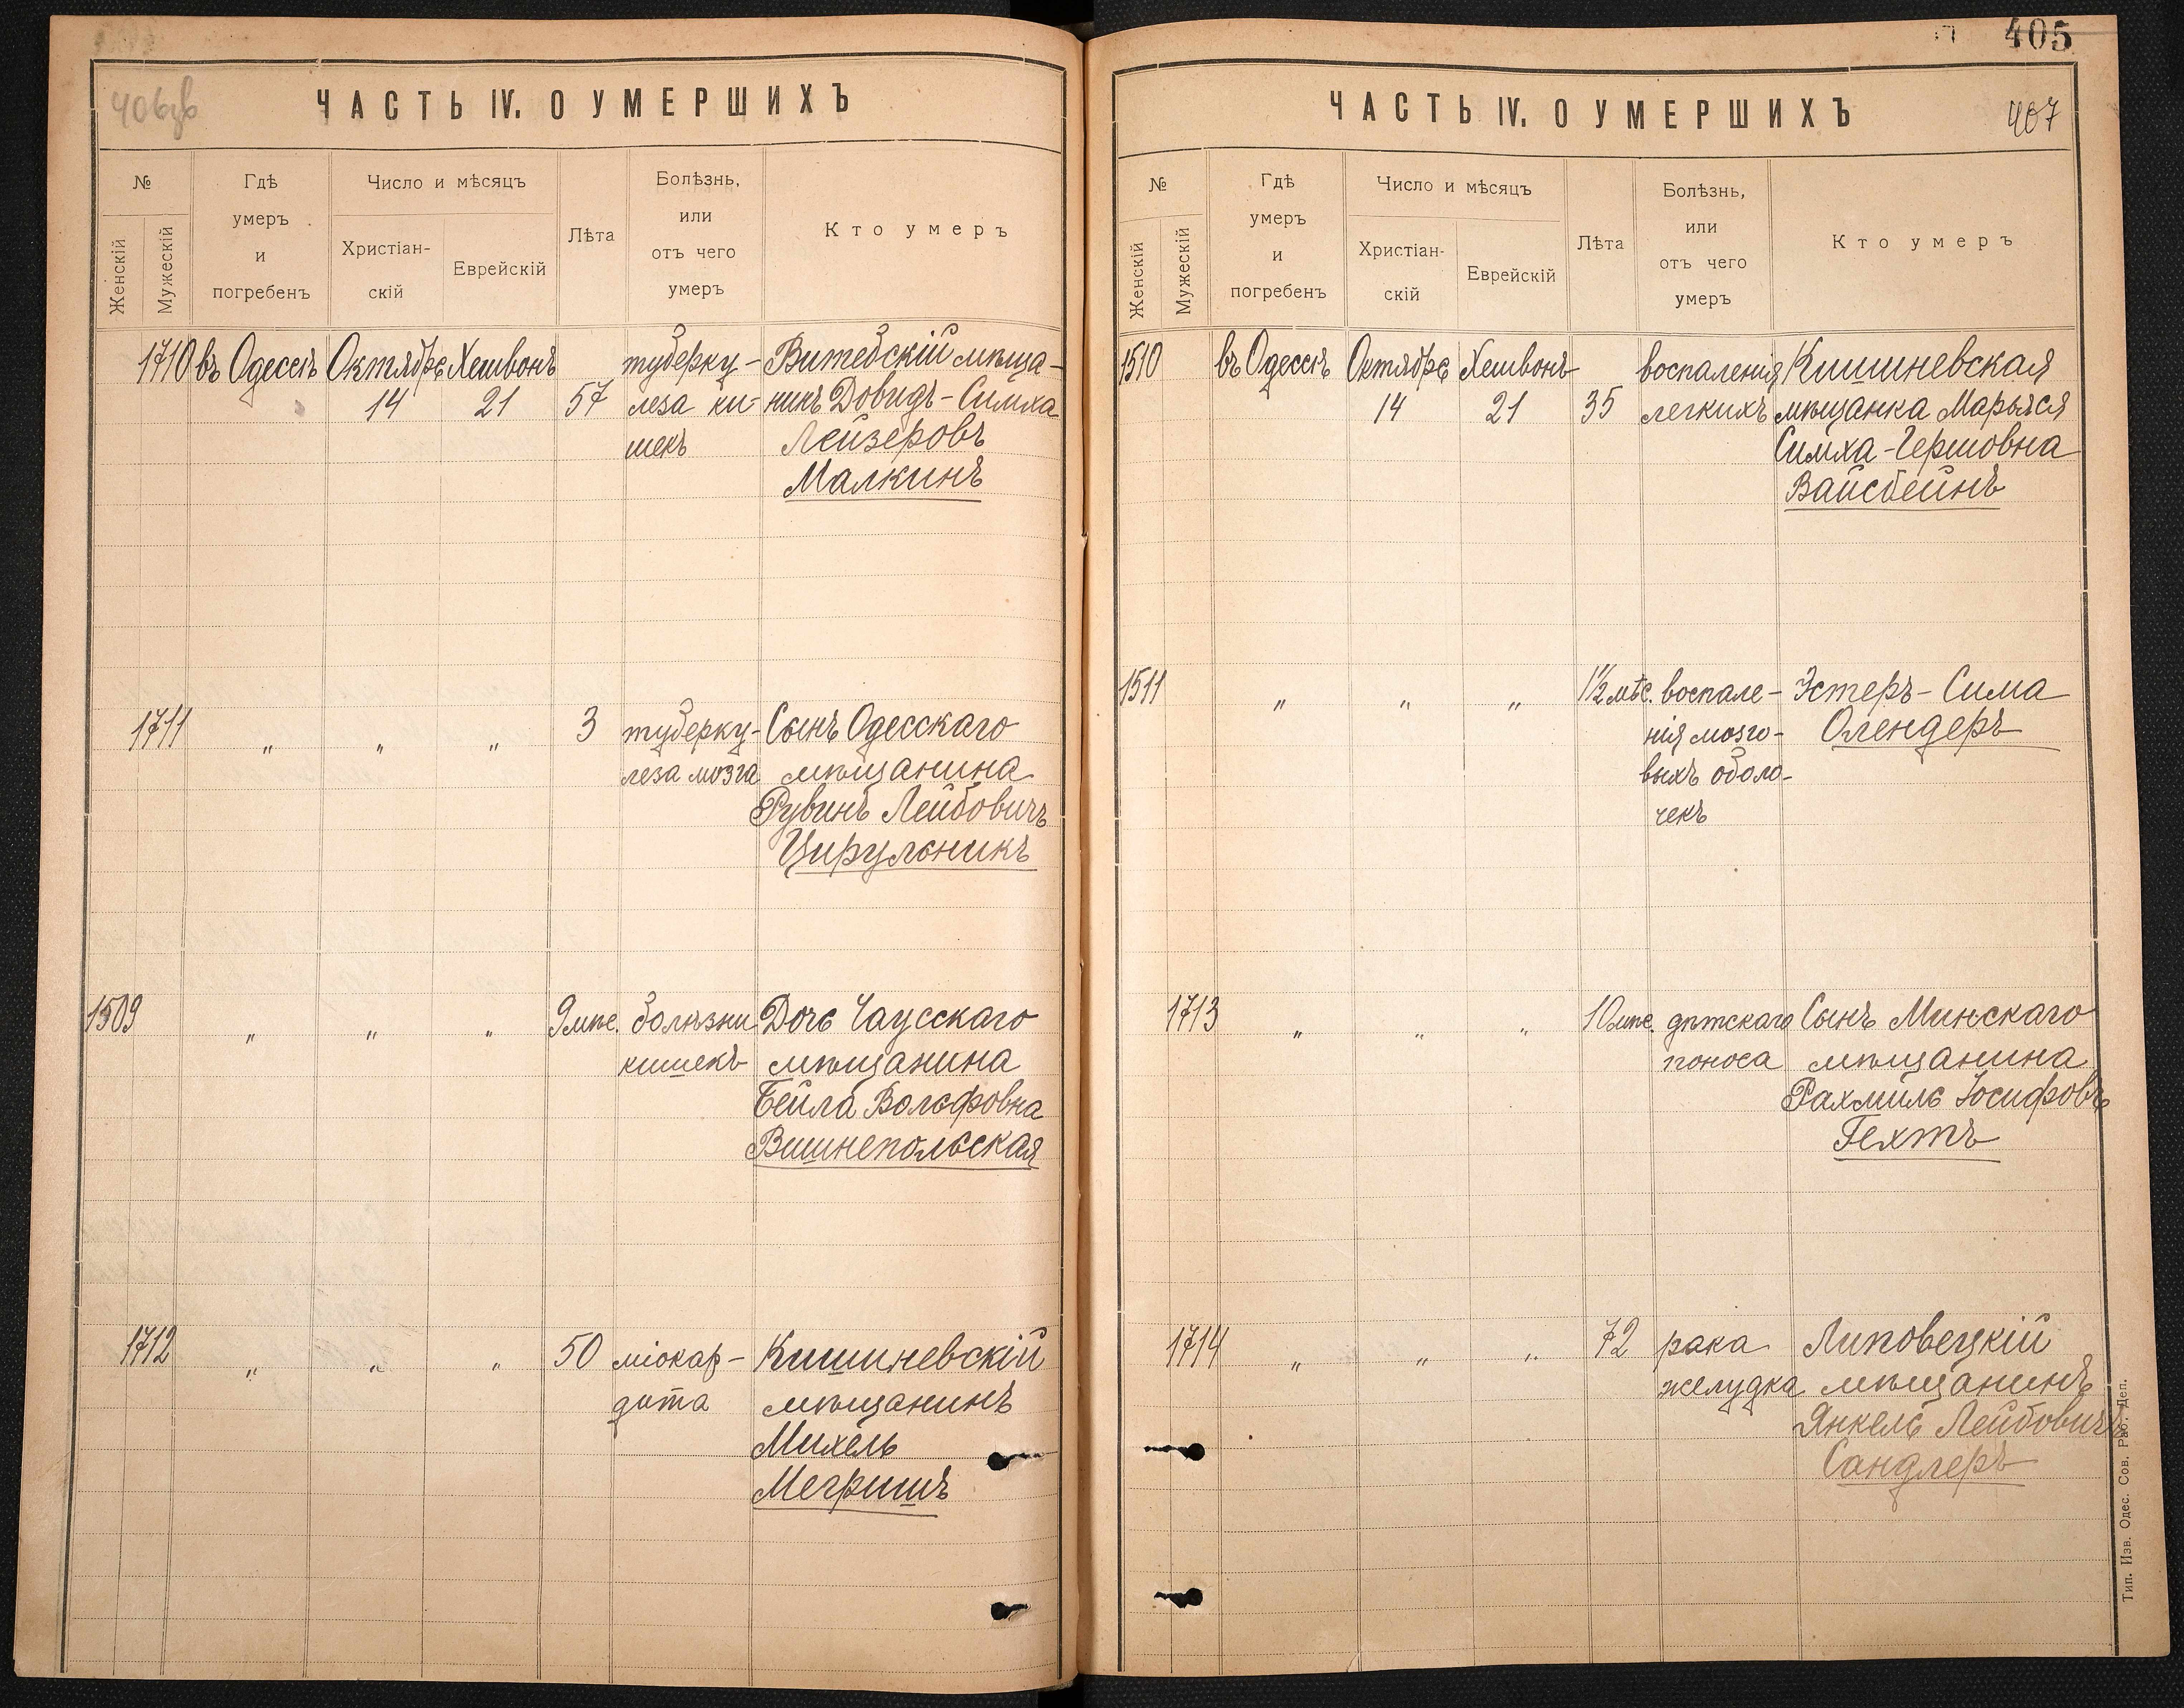 406об
ЧАСТЬ IV. О УМЕРШИХЪ
№
Женскій
Мужескій
Гдѣ
умеръ
и
погребенъ
Число и мѣсяцъ
Христіан-
скій
Еврейскій
Лѣта
Болѣзнь,
или
отъ чего
умеръ
Кто умеръ
1710 въ Одессѣ Октябрь Хешвонъ туберку- Витебскій мѣща-
14 21 57 леза ки- нинъ Довидъ-Симха
шекъ Лейзеровъ
Малкинъ
1711 " " " 3 туберку- Сынъ Одесскаго
леза мозга мѣщанина
Рувинъ Лейбовичъ
Цирульникъ
1509 " " " 9 мѣс. болѣзни Дочь Чаусскаго
кишекъ мѣщанина
Бейла Вольфовна
Вишнепольская
1712 " " " 50 міокар- Кишиневскій
дита мѣщанинъ
Михель
Мегришъ
405
ЧАСТЬ IV. О УМЕРШИХЪ
407
№
Женскій
Мужескій
Гдѣ
умеръ
и
погребенъ
Число и мѣсяцъ
Христіан-
скій
Еврейскій
Лѣта
Болѣзнь,
или
отъ чего
умеръ
Кто умеръ
1510 въ Одессѣ Октябрь Хешвонъ воспаленія Кишиневская
14 21 35 легкихъ мѣщанка Марьяся
Симха-Гершовна
Вайсбейнъ
1511 " " " 1½ мѣс. воспале- Эстеръ-Сима
нія мозго- Олендеръ
выхъ оболо-
чекъ
1713 " " " 10 мѣс. дѣтскаго Сынъ Минскаго
поноса мѣщанина
Рахмиль Іосифовъ
Гехтъ
1714 " " " 72 рака Липовецкій
желудка мѣщанинъ
Янкель Лейбовичъ
Сандлеръ
Тип. Изв. Одес. Сов. Раб. Деп.